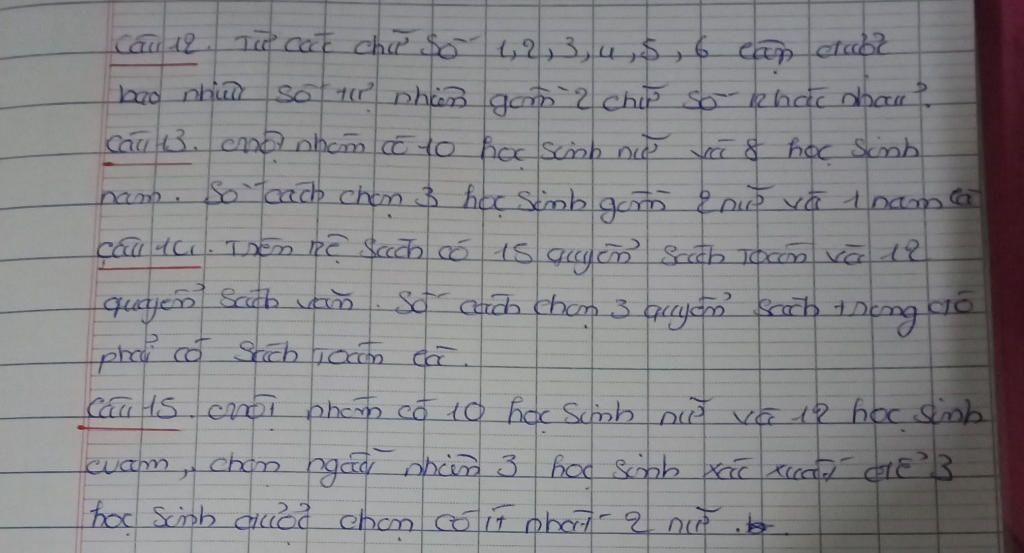 Câu 12. Từ các chữ số 1, 2, 3, 4, 5, 6 lập được
bao nhiêu số tự nhiên gồm 2 chữ số khác nhau?
Câu 13. Một nhóm có 10 học sinh nữ và 8 học sinh
nam. Số cách chọn 3 học sinh gồm 2 nữ và 1 nam là
Câu 14. Trên kệ sách có 15 quyển sách Toán và 12
quyển sách văn. Số cách chọn 3 quyển sách trong đó
phải có sách Toán là.
Câu 15. Một nhóm có 10 học sinh nữ và 12 học sinh
nam, chọn ngẫu nhiên 3 học sinh xác xuất để 3
học sinh được chọn có ít nhất 2 nữ.